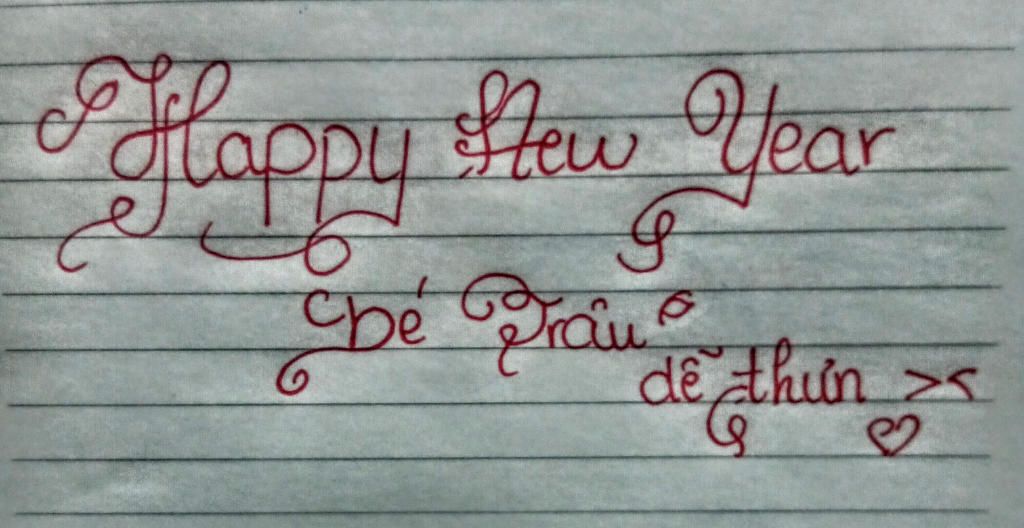 Happy New Year
bé Trâu
dễ thưn ><